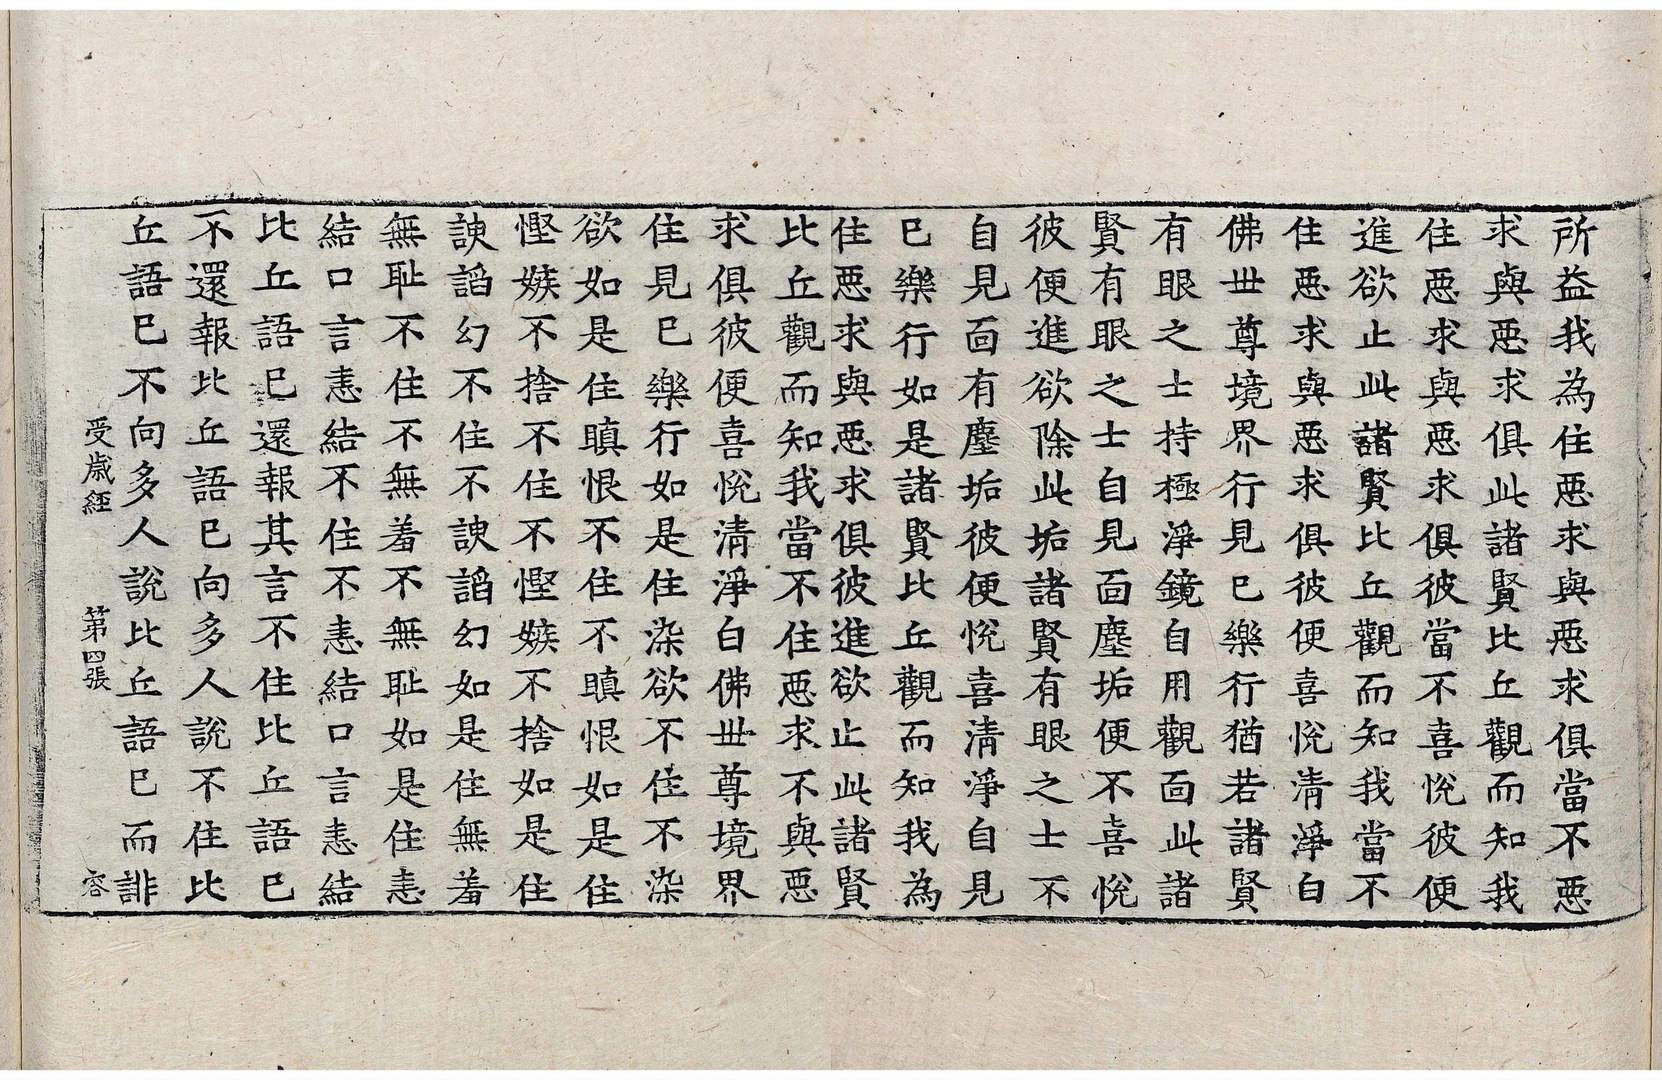 所益我為住惡求與惡求俱當不惡
求與惡求俱此諸賢比丘觀而知我
住惡求與惡求俱彼當不喜悅彼便
進欲止此諸賢比丘觀而知我當不
住惡求與惡求俱彼便喜悅清淨白
佛世尊境界行見已樂行猶若諸賢
有眼之士持極淨鏡自用觀面此諸
賢有眼之士自見面塵垢便不喜悅
彼便進欲除此垢諸賢有眼之士不
自見面有塵垢彼便悅喜清淨自見
已樂行如是諸賢比丘觀而知我為
住惡求與惡求俱彼進欲止此諸賢
比丘觀而知我當不住惡求不與惡
求俱彼便喜悅清淨白佛世尊境界
住見已樂行如是住染欲不住不染
欲如是住瞋恨不住不瞋恨如是住
慳嫉不捨不住不慳嫉不捨如是住
諛諂幻不住不諛諂幻如是住無羞
無恥不住不無羞不無恥如是住恚
結口言恚結不住不恚結口言恚結
比丘語已還報其言不住比丘語已
不還報比丘語已向多人說不住比
丘語已不向多人說比丘語已而誹
受歲經 第四張 容